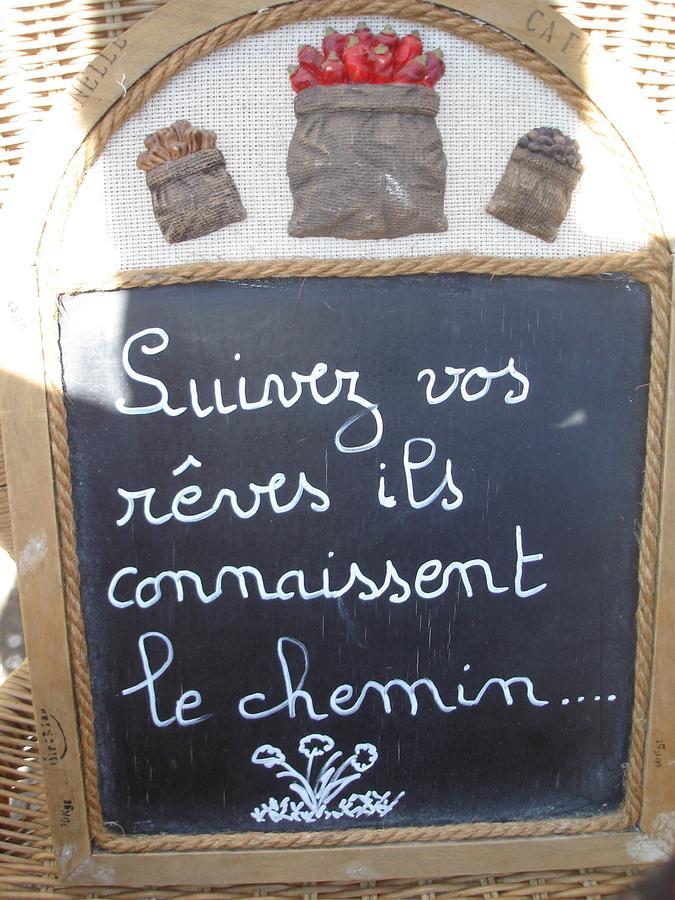 NELLE
CAFE
Suivez vos
rêves ils
connaissent
le chemin....